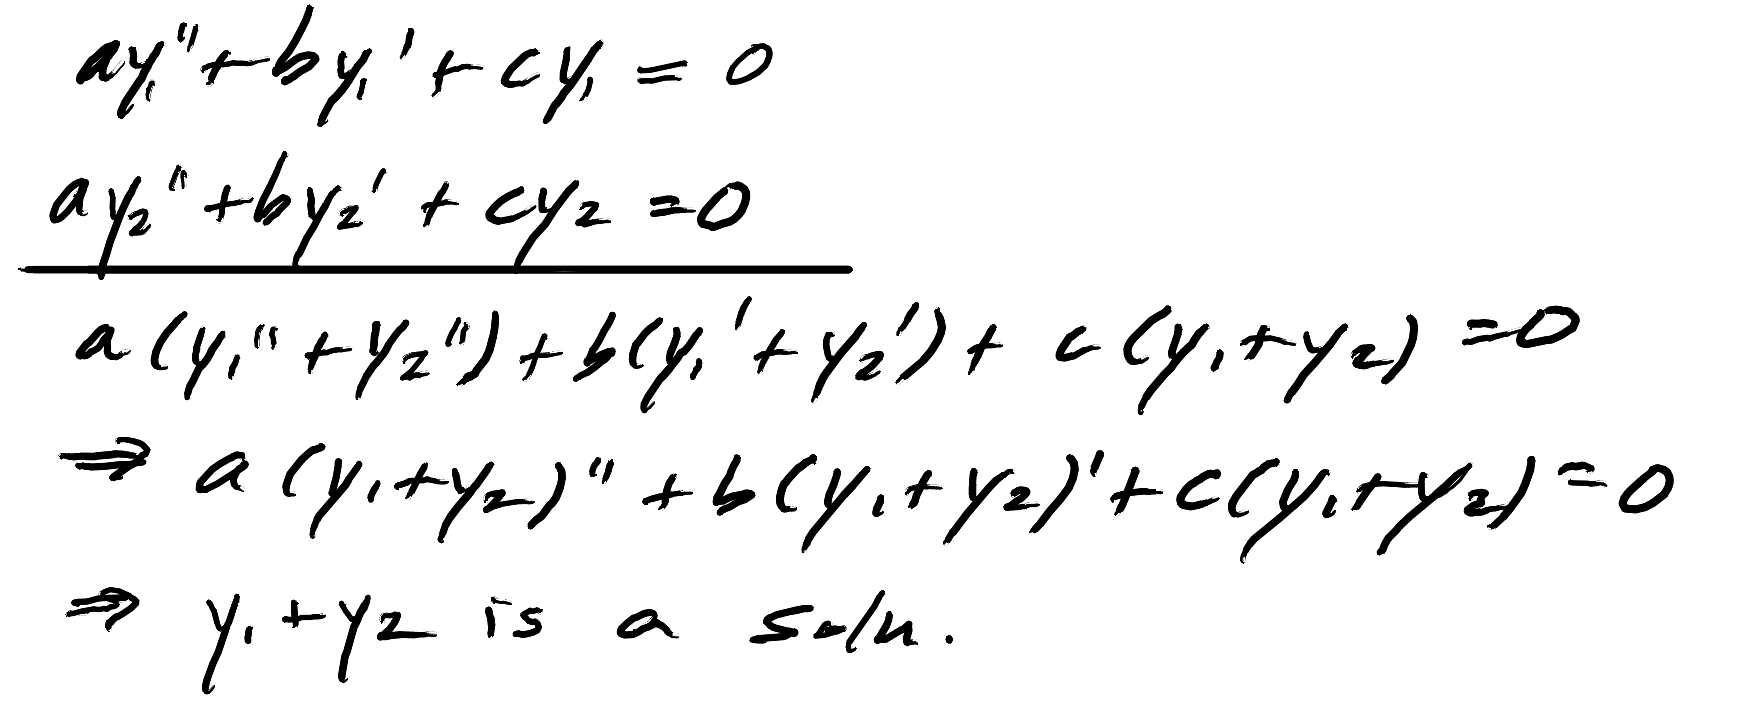 ay₁'' + by₁' + cy₁ = 0
ay₂'' + by₂' + cy₂ = 0
a(y₁'' + y₂'') + b(y₁' + y₂') + c(y₁ + y₂) = 0
⇒ a(y₁ + y₂)'' + b(y₁ + y₂)' + c(y₁ + y₂) = 0
⇒ y₁ + y₂ is a soln.